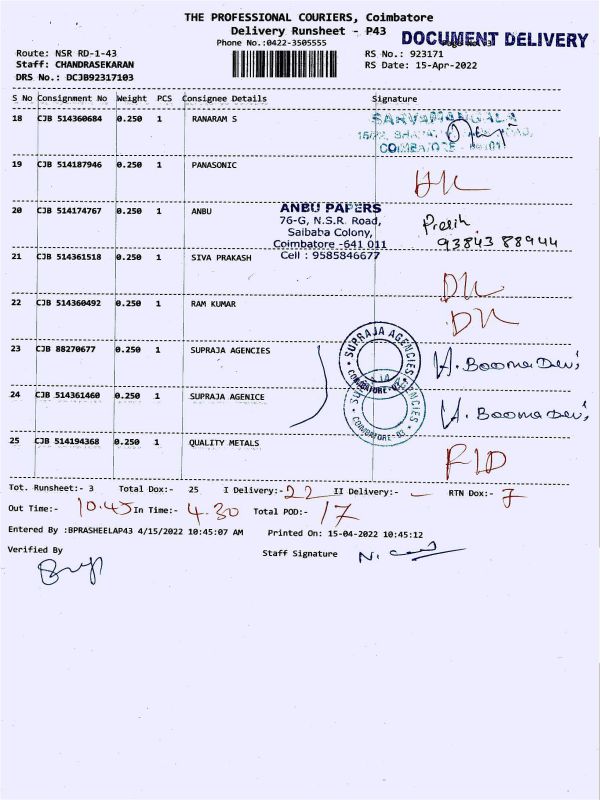 THE PROFESSIONAL COURIERS, Coimbatore
Delivery Runsheet - P43
Phone No.:0422-3505555
DOCUMENT DELIVERY
Route: NSR RD-1-43
RS No.: 923171
Staff: CHANDRASEKARAN
RS Date: 15-Apr-2022
DRS No.: DCJB92317103
S No Consignment No Weight PCS Consignee Details Signature
18 CJB 514360684 0.250 1 RANARAM S
SARVAMANGALA
COIMBATORE
19 CJB 514187946 0.250 1 PANASONIC
DL
20 CJB 514174767 0.250 1 ANBU
ANBU PAPERS
76-G, N.S.R. Road,
Saibaba Colony,
Coimbatore -641 011
Cell : 9585846677
93843 88944
21 CJB 514361518 0.250 1 SIVA PRAKASH
DL
22 CJB 514360492 0.250 1 RAM KUMAR
DL
23 CJB 88270677 0.250 1 SUPRAJA AGENCIES
SUPRAJA AGENCIES
COIMBATORE
H. Booma Devi
24 CJB 514361460 0.250 1 SUPRAJA AGENICE
COIMBATORE-03
H. Booma Devi
25 CJB 514194368 0.250 1 QUALITY METALS
Tot. Runsheet:- 3 Total Dox:- 25 I Delivery:- 22 II Delivery:- - RTN Dox:- 7
Out Time:- 10.45 In Time:- 4.30 Total POD:- 17
Entered By :BPRASHEELAP43 4/15/2022 10:45:07 AM Printed On: 15-04-2022 10:45:12
Verified By
Staff Signature